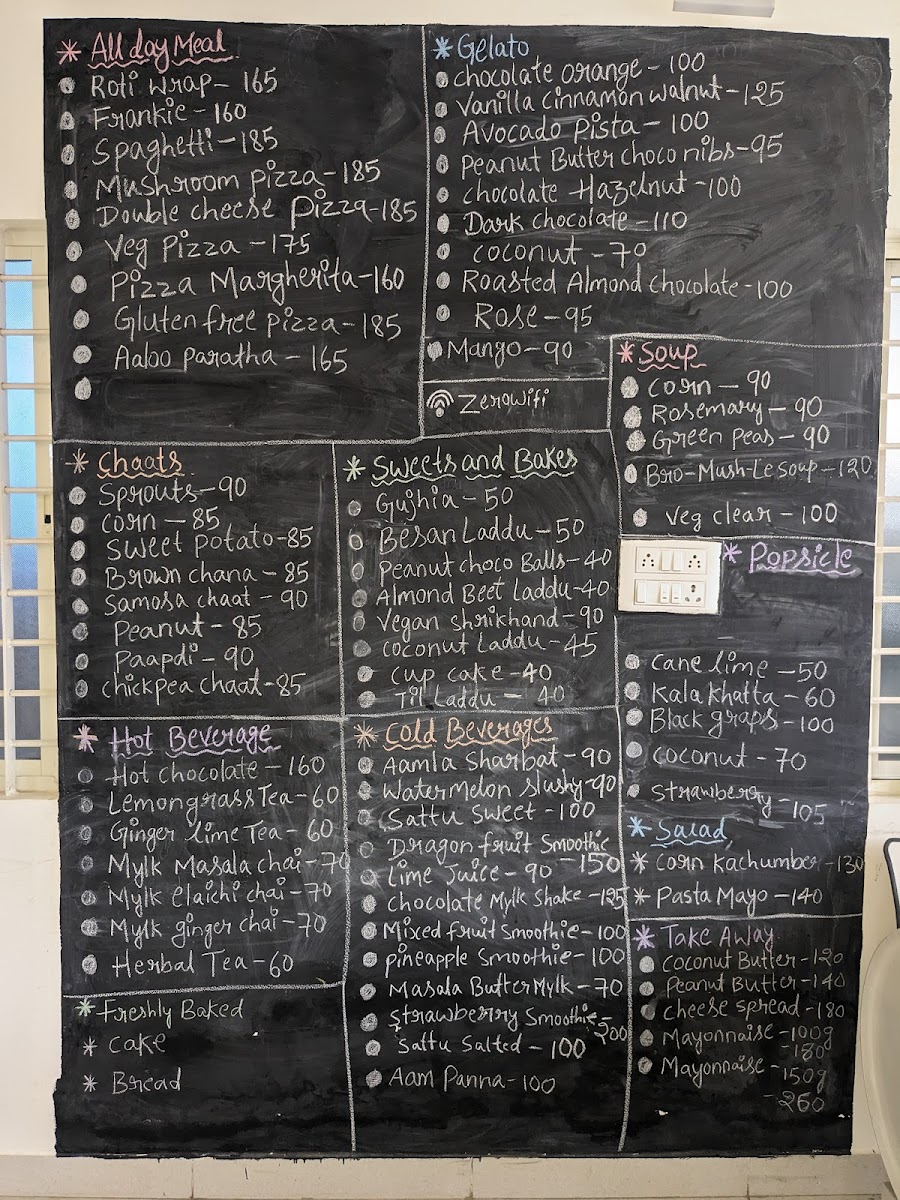 * All day Meal
Roti wrap - 165
Frankie - 160
Spaghetti - 185
Mushroom pizza - 185
Double cheese pizza - 185
Veg Pizza - 175
Pizza Margherita - 160
Gluten free pizza - 185
Aaloo paratha - 165
* Gelato
chocolate orange - 100
Vanilla Cinnamon walnut - 125
Avocado Pista - 100
Peanut Butter choco nibs - 95
chocolate Hazelnut - 100
Dark chocolate - 110
coconut - 70
Roasted Almond chocolate - 100
Rose - 95
Mango - 90
Zerowifi
* Soup
Corn - 90
Rosemary - 90
Green Peas - 90
Bro-Mush-Le soup - 120
Veg clear - 100
* Chaats
Sprouts - 90
Corn - 85
Sweet Potato - 85
Brown chana - 85
Samosa chaat - 90
Peanut - 85
Paapdi - 90
chickpea chaat - 85
* Sweets and Bakes
Gujhia - 50
Besan Laddu - 50
Peanut choco Balls - 40
Almond Beet Laddu - 40
Vegan Shrikhand - 90
coconut Laddu - 45
cup cake - 40
Til Laddu - 40
* Popsicle
Cane lime - 50
Kala Khatta - 60
Black graps - 100
coconut - 70
Strawberry - 105
* Hot Beverage
Hot chocolate - 160
Lemongrass Tea - 60
Ginger lime Tea - 60
Mylk Masala chai - 70
Mylk elaichi chai - 70
Mylk ginger chai - 70
Herbal Tea - 60
* Cold Beverages
Aamla Sharbat - 90
Watermelon slushy - 90
Sattu Sweet - 100
Dragon fruit Smoothie
- 150
Lime Juice - 90
chocolate Mylk Shake - 125
Mixed fruit Smoothie - 100
pineapple Smoothie - 100
Masala ButterMylk - 70
Strawberrry Smoothie -
200
Sattu Salted - 100
Aam Panna - 100
* Salad
* Corn Kachumber - 130
* Pasta Mayo - 140
* Take Away
Coconut Butter - 120
Peanut Butter - 140
Cheese spread - 180
Mayonnaise - 100g
- 180
Mayonnaise - 150g
- 260
* Freshly Baked
* Cake
* Bread